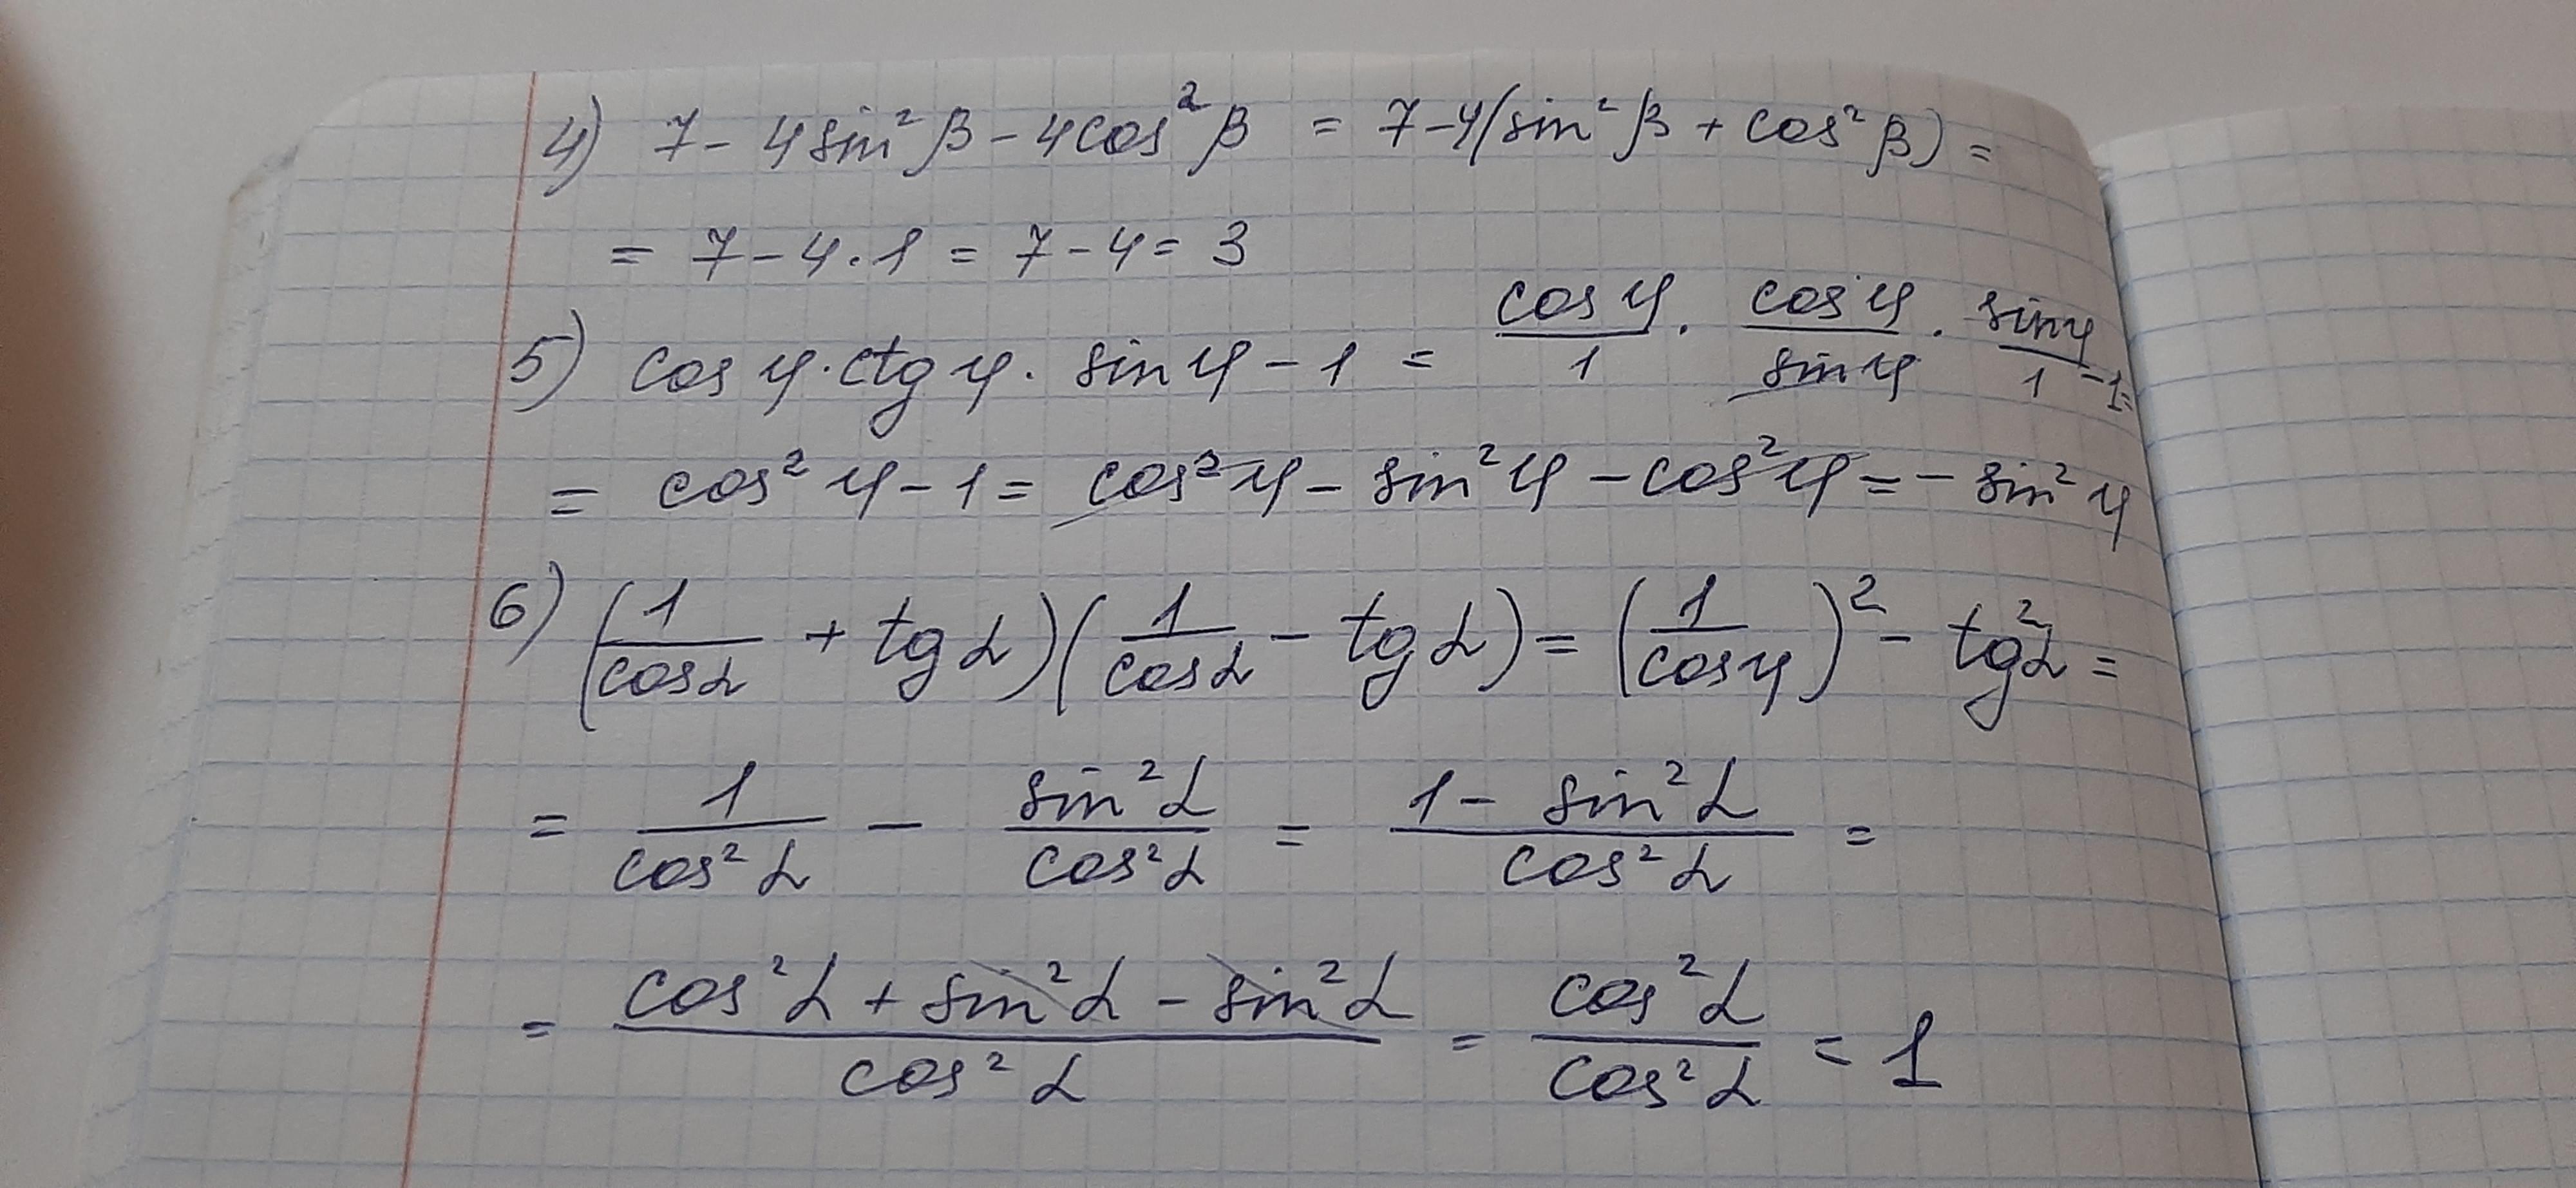 4) 7 - 4 sin² β - 4 cos² β = 7 - 4(sin² β + cos² β) =
= 7 - 4 · 1 = 7 - 4 = 3
5) cos φ · ctg φ · sin φ - 1 = cos φ / 1 · cos φ / sin φ · sin φ / 1 - 1 =
= cos² φ - 1 = cos² φ - sin² φ - cos² φ = - sin² φ
6) (1 / cos α + tg α)(1 / cos α - tg α) = (1 / cos φ)² - tg² α =
= 1 / cos² α - sin² α / cos² α = (1 - sin² α) / cos² α =
= (cos² α + sin² α - sin² α) / cos² α = cos² α / cos² α = 1